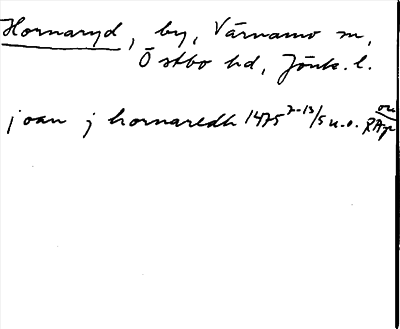 Hornaryd, by, Värnamo sn,
Östbo hd, Jönk. l.
joan j hornaredh 1475 2-13/5 u.o. RAp or